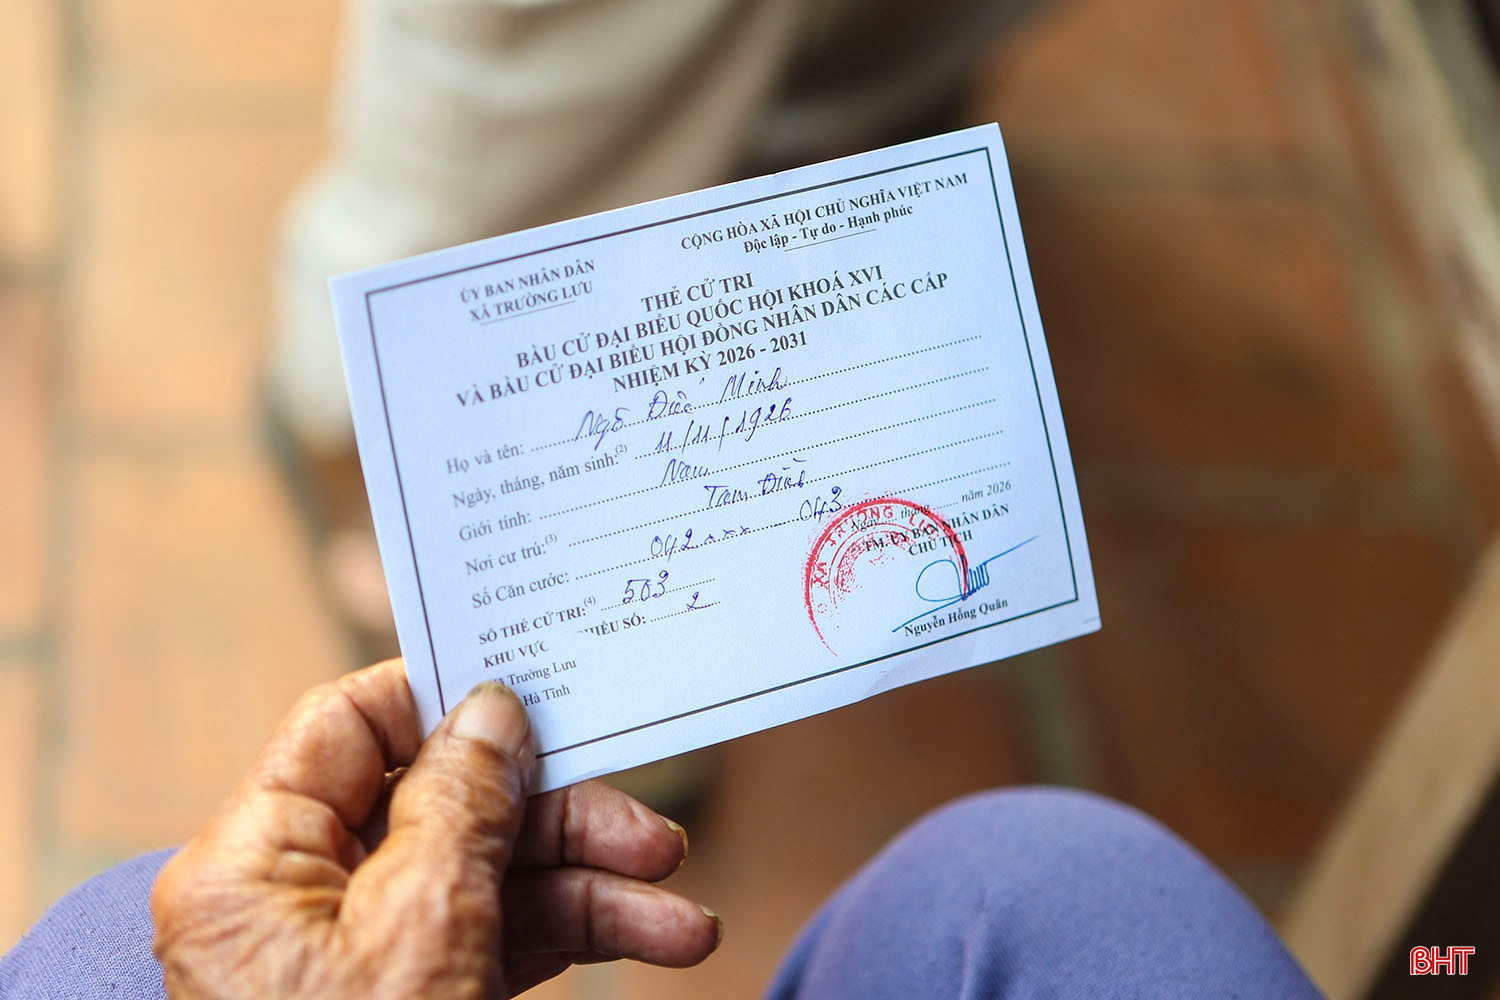 ỦY BAN NHÂN DÂN
XÃ TRƯỜNG LƯU
CỘNG HÒA XÃ HỘI CHỦ NGHĨA VIỆT NAM
Độc lập - Tự do - Hạnh phúc
THẺ CỬ TRI
BẦU CỬ ĐẠI BIỂU QUỐC HỘI KHOÁ XVI
VÀ BẦU CỬ ĐẠI BIỂU HỘI ĐỒNG NHÂN DÂN CÁC CẤP
NHIỆM KỲ 2026 - 2031
Họ và tên: Ngô Đức Minh
Ngày, tháng, năm sinh:(2) 11/11/1926
Giới tính: Nam
Nơi cư trú:(3) Tam Đình
Số Căn cước: 042 *** 043
SỐ THẺ CỬ TRI:(4) 503
KHU VỰC PHIẾU SỐ: 2
Xã Trường Lưu
Hà Tĩnh
Ngày tháng năm 2026
TM. ỦY BAN NHÂN DÂN
CHỦ TỊCH
Nguyễn Hồng Quân
BHT